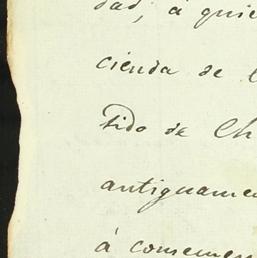 dad, á quie
cienda de l
tido de Ch
antiguamen
á consecuen